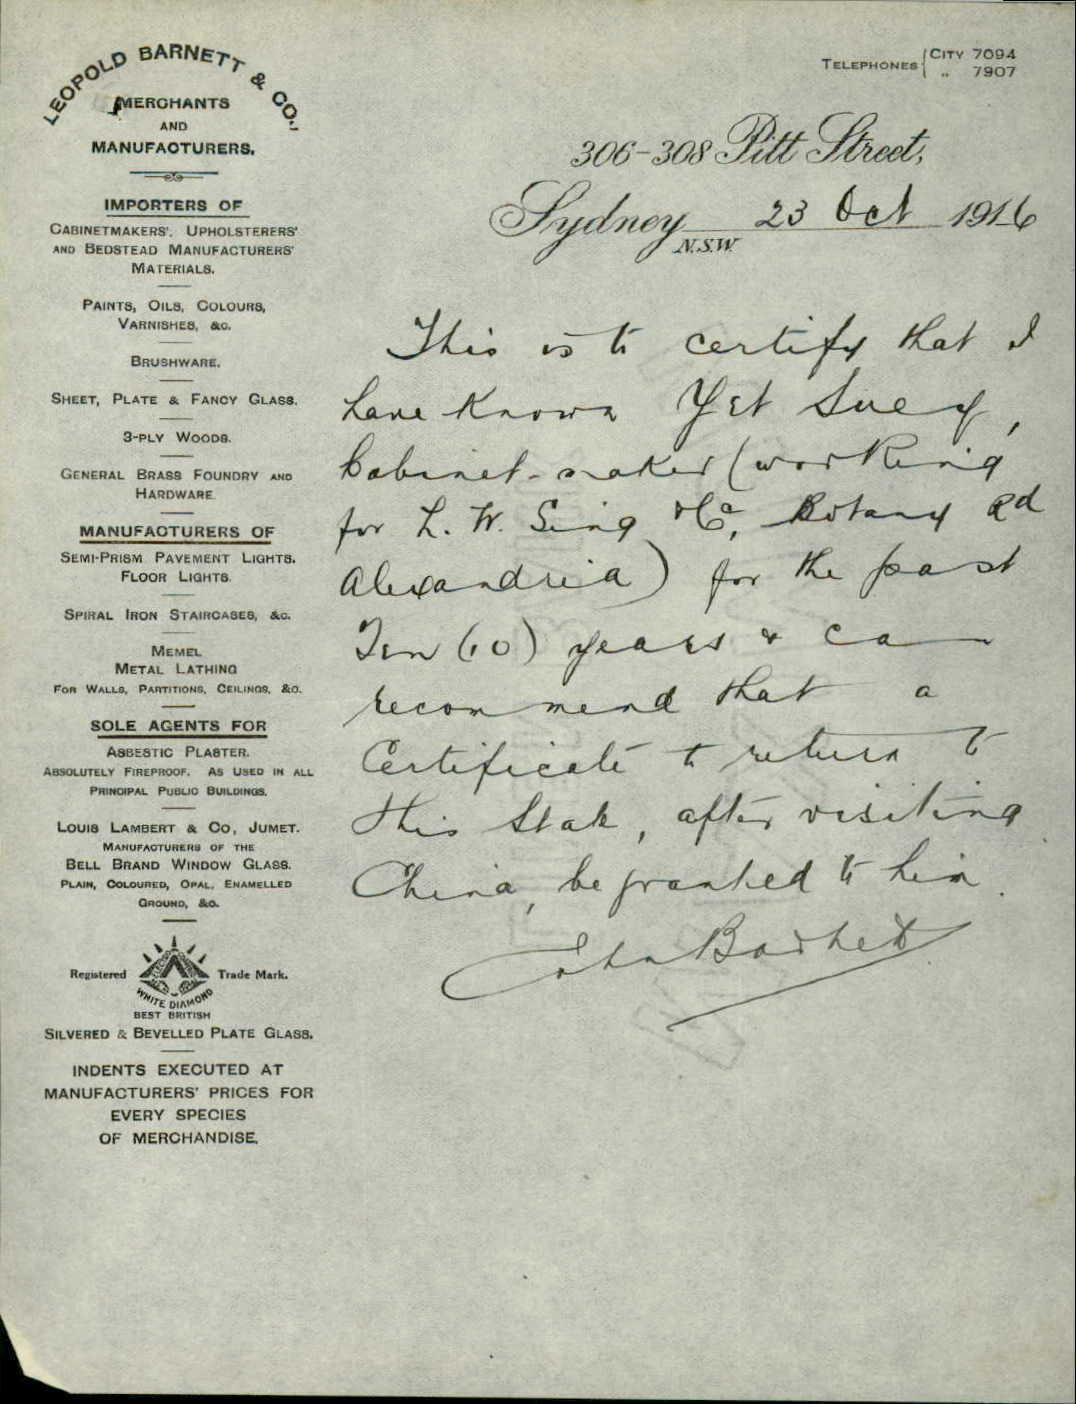 LEOPOLD BARNETT & CO.,
MERCHANTS
AND
MANUFACTURERS.
IMPORTERS OF
CABINETMAKERS', UPHOLSTERERS'
AND BEDSTEAD MANUFACTURERS'
MATERIALS.
PAINTS, OILS, COLOURS,
VARNISHES, &C.
BRUSHWARE.
SHEET, PLATE & FANCY GLASS.
3-PLY WOODS.
GENERAL BRASS FOUNDRY AND
HARDWARE.
MANUFACTURERS OF
SEMI-PRISM PAVEMENT LIGHTS.
FLOOR LIGHTS.
SPIRAL IRON STAIRCASES, &C.
MEMEL
METAL LATHING
FOR WALLS, PARTITIONS, CEILINGS, &C.
SOLE AGENTS FOR
ASBESTIC PLASTER.
ABSOLUTELY FIREPROOF. AS USED IN ALL
PRINCIPAL PUBLIC BUILDINGS.
LOUIS LAMBERT & CO, JUMET.
MANUFACTURERS OF THE
BELL BRAND WINDOW GLASS.
PLAIN, COLOURED, OPAL, ENAMELLED
GROUND, &C.
Registered Trade Mark.
WHITE DIAMOND
BEST BRITISH
SILVERED & BEVELLED PLATE GLASS.
INDENTS EXECUTED AT
MANUFACTURERS' PRICES FOR
EVERY SPECIES
OF MERCHANDISE.
TELEPHONES { CITY 7094
„ 7907
306-308 Pitt Street,
Sydney 23 Oct 1916
N.S.W.
This is to certify that I
have known Yet Suey,
Cabinet-maker (working
for L. W. Sing & Co, Botany Rd
Alexandria) for the past
Ten (10) years & can
recommend that a
Certificate to return to
this State, after visiting
China, be granted to him.
John Barnett